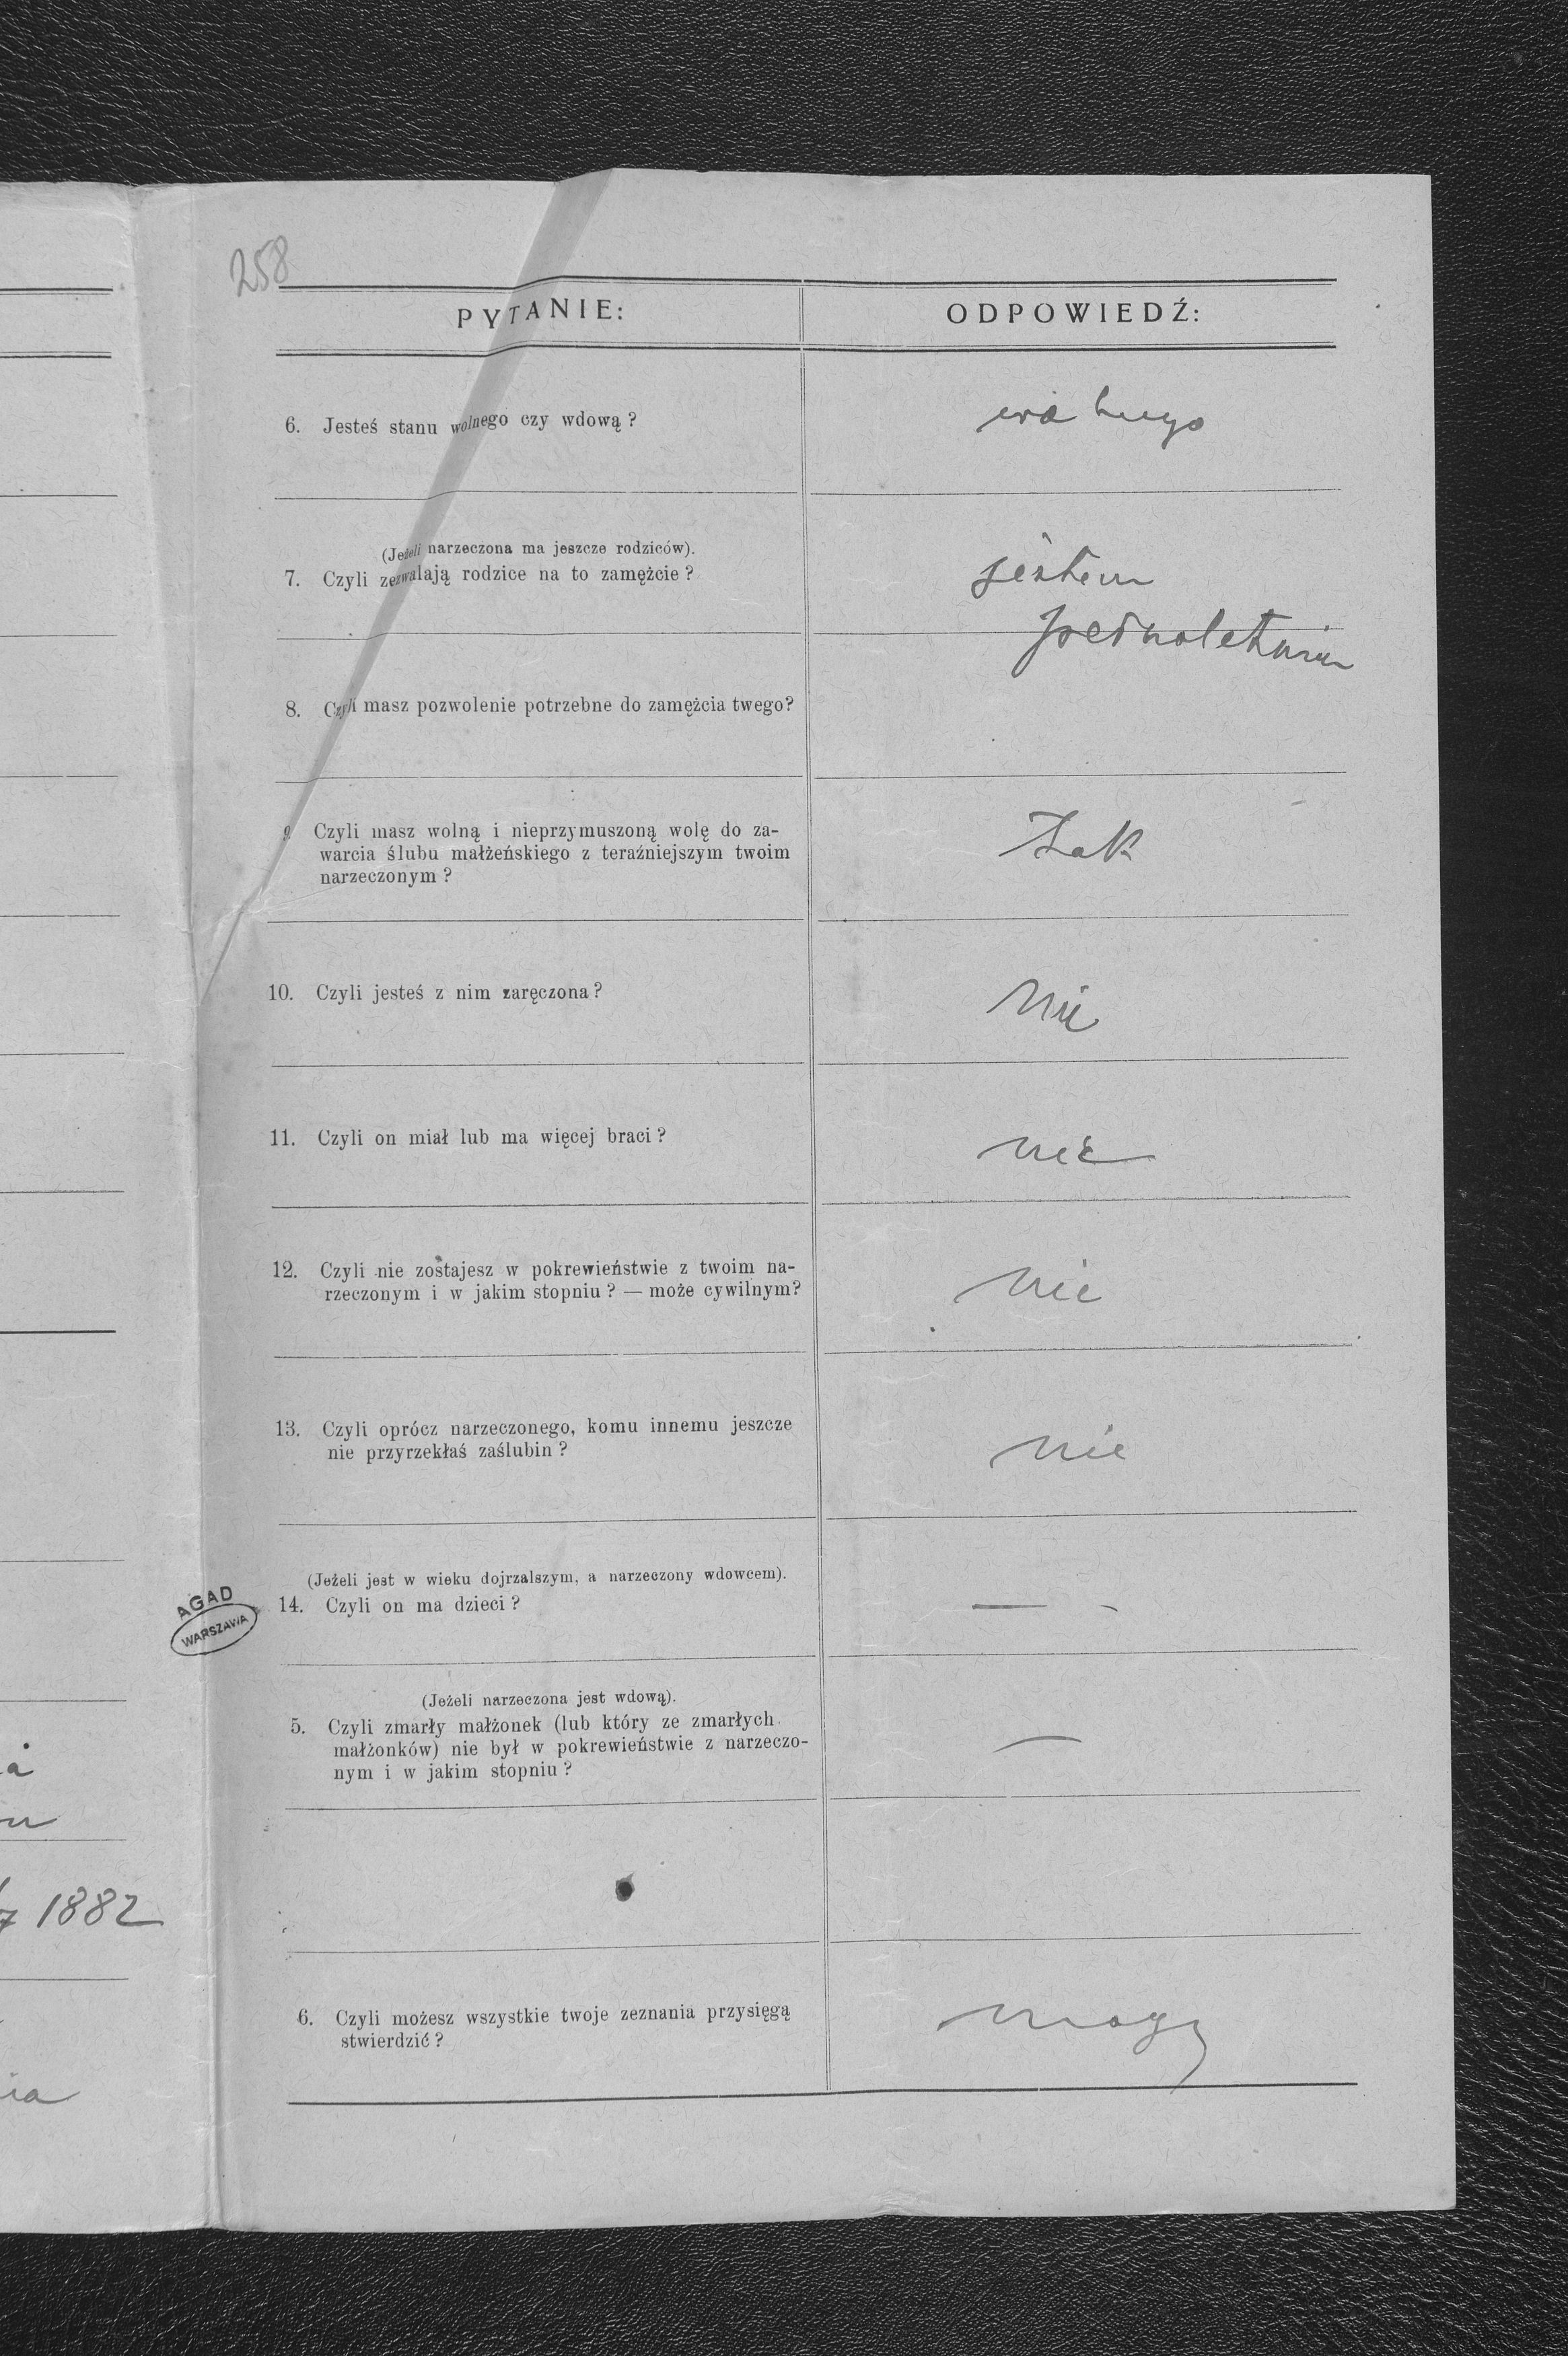 258
PYTANIE: ODPOWIEDŹ:
6. Jesteś stanu wolnego czy wdową?
(Jeżeli narzeczona ma jeszcze rodziców).
7. Czyli zezwalają rodzice na to zamężcie?
jestem
8. Czyli masz pozwolenie potrzebne do zamężcia twego?
9. Czyli masz wolną i nieprzymuszoną wolę do za-
warcia ślubu małżeńskiego z teraźniejszym twoim
narzeczonym?
Tak
10. Czyli jesteś z nim zaręczona?
nie
11. Czyli on miał lub ma więcej braci?
nie
12. Czyli nie zostajesz w pokrewieństwie z twoim na-
rzeczonym i w jakim stopniu? — może cywilnym?
nie
13. Czyli oprócz narzeczonego, komu innemu jeszcze
nie przyrzekłaś zaślubin?
nie
(Jeżeli jest w wieku dojrzalszym, a narzeczony wdowcem).
14. Czyli on ma dzieci?
— -
AGAD
WARSZAWA
(Jeżeli narzeczona jest wdową).
5. Czyli zmarły małżonek (lub który ze zmarłych
małżonków) nie był w pokrewieństwie z narzeczo-
nym i w jakim stopniu?
—
1882
6. Czyli możesz wszystkie twoje zeznania przysięgą
stwierdzić?
mogę